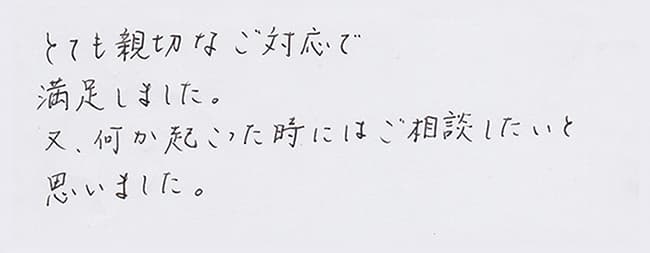 とても親切なご対応で
満足しました。
又、何か起こった時にはご相談したいと
思いました。